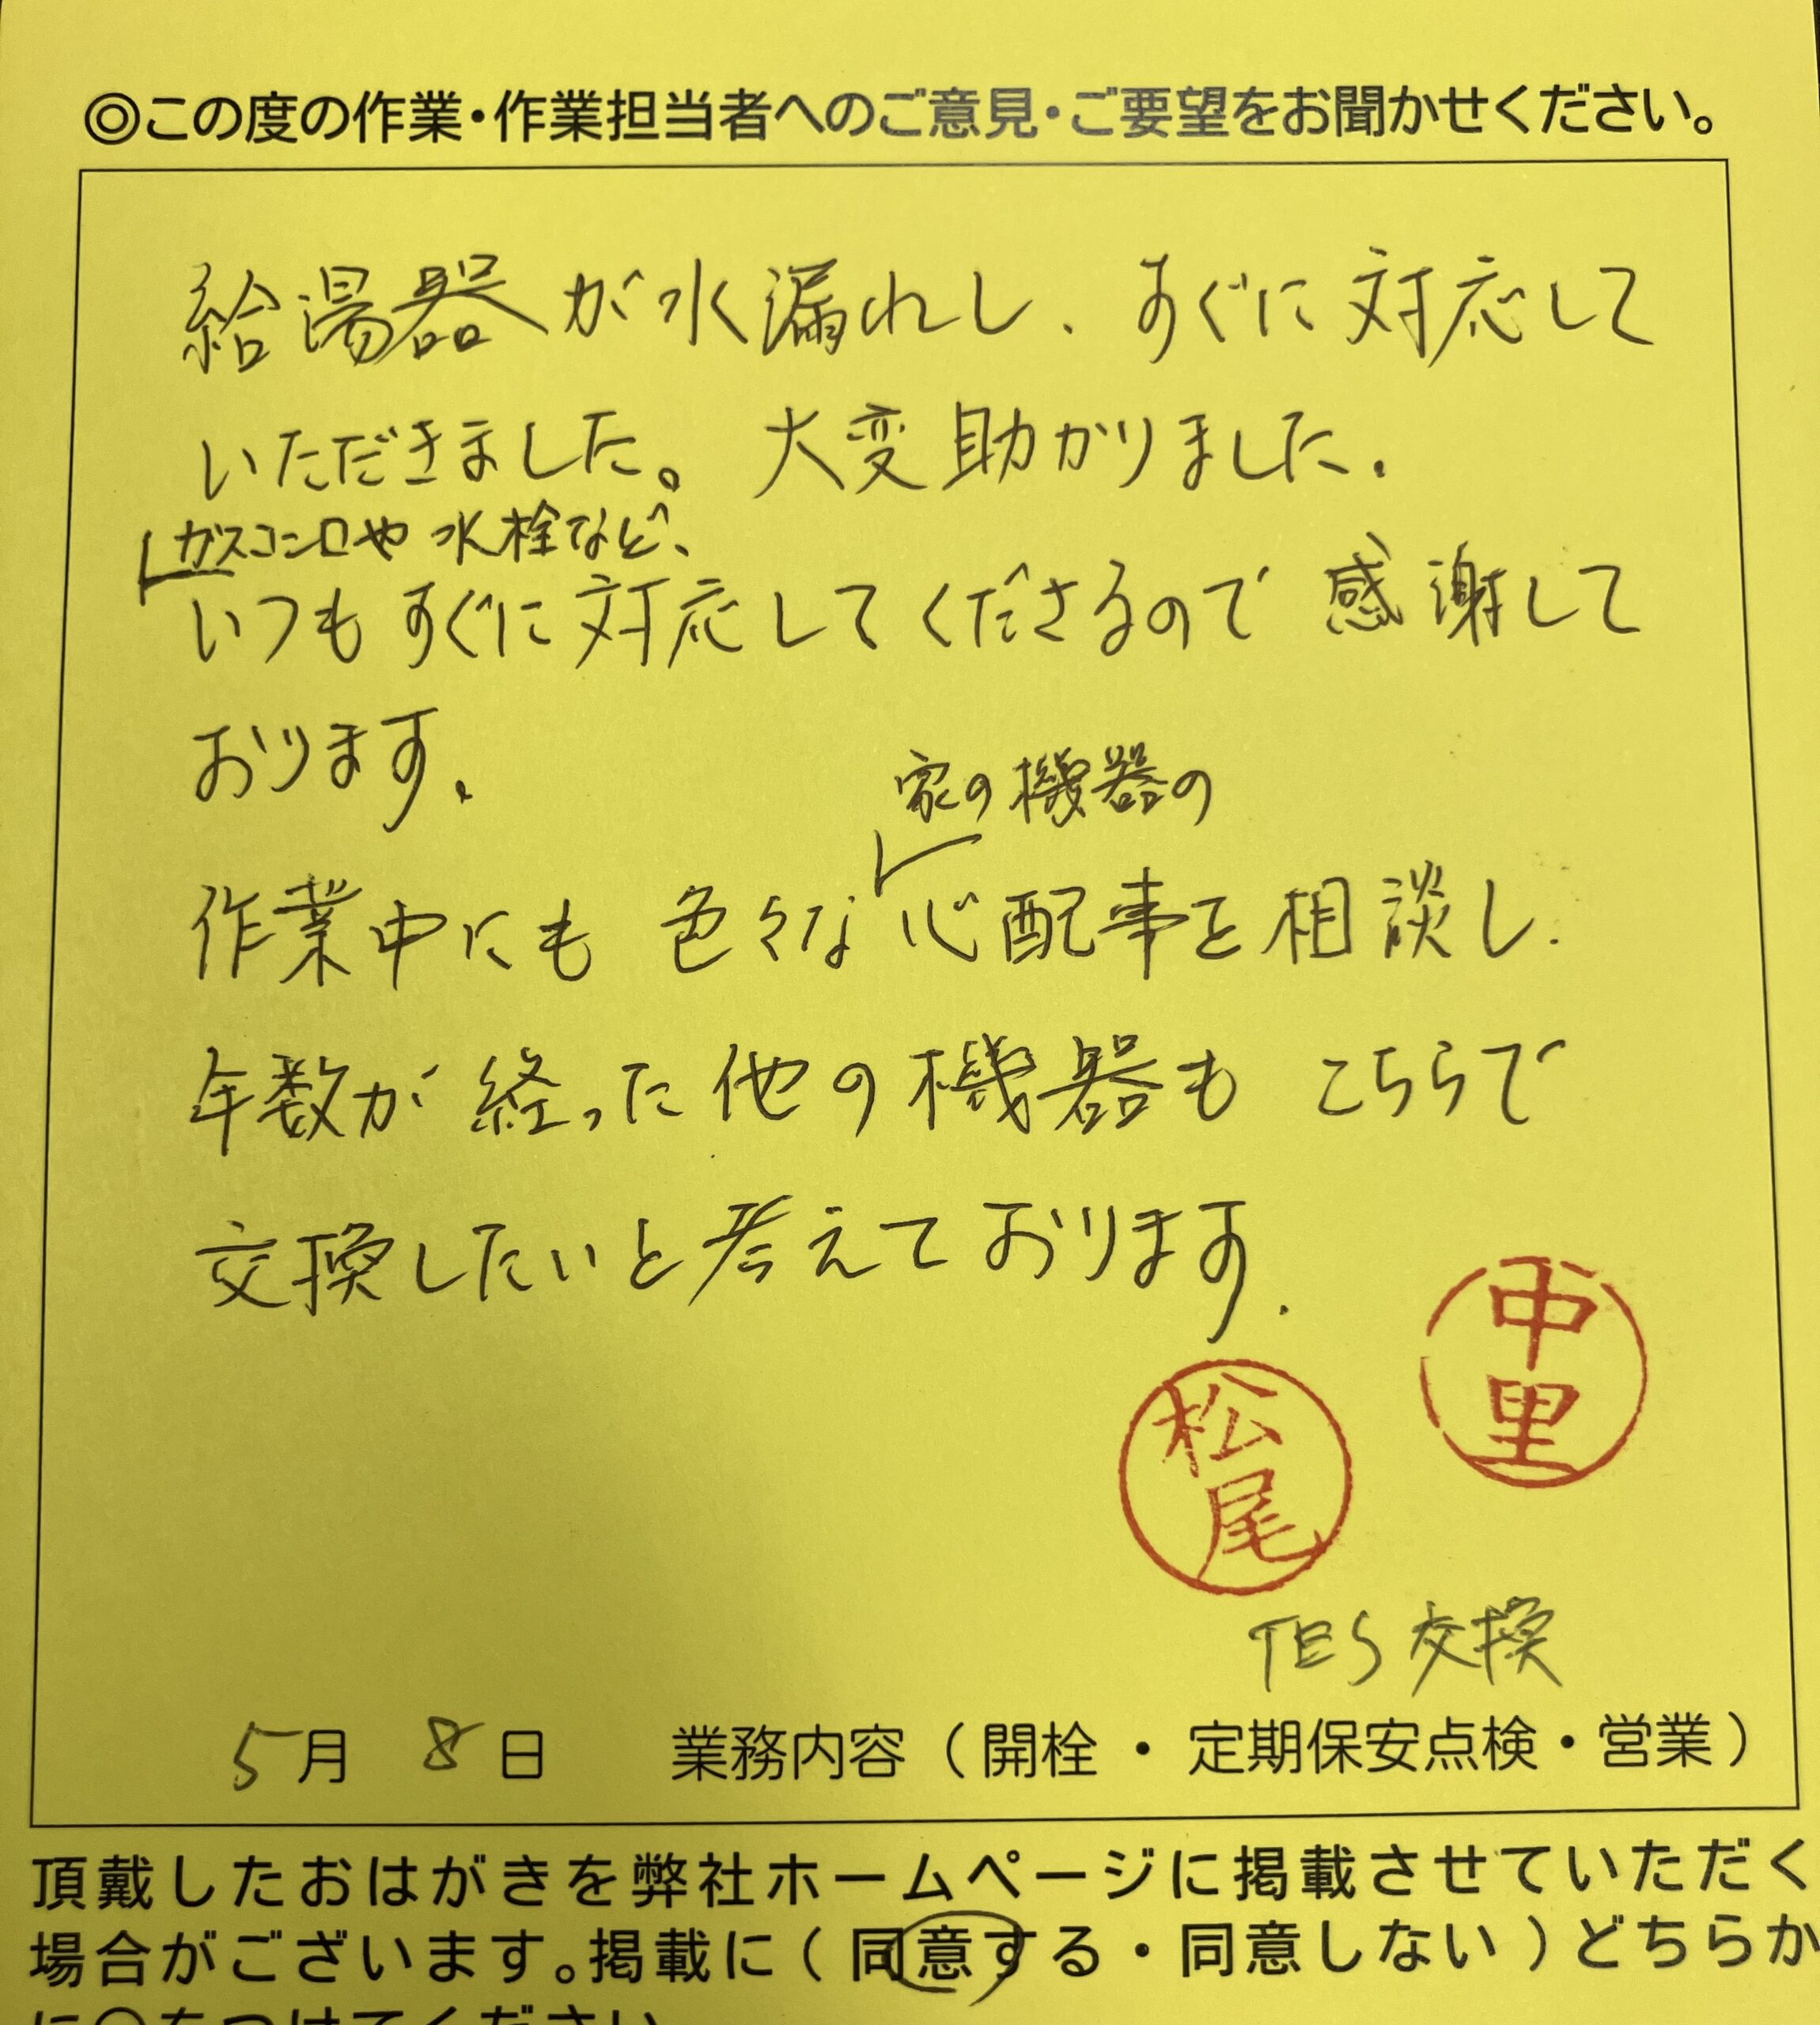 ◎この度の作業・作業担当者へのご意見・ご要望をお聞かせください。
給湯器が水漏れし、すぐに対応して
いただきました。大変助かりました。
ガスコンロや水栓など、
いつもすぐに対応してくださるので感謝して
おります。
家の機器の
作業中にも色々な心配事を相談し、
年数が経った他の機器もこちらで
交換したいと考えております。
中里
松尾
TES交換
5月 8日 業務内容（開栓・定期保安点検・営業）
頂戴したおはがきを弊社ホームページに掲載させていただく
場合がございます。掲載に（同意する・同意しない）どちらか
に○をつけてください